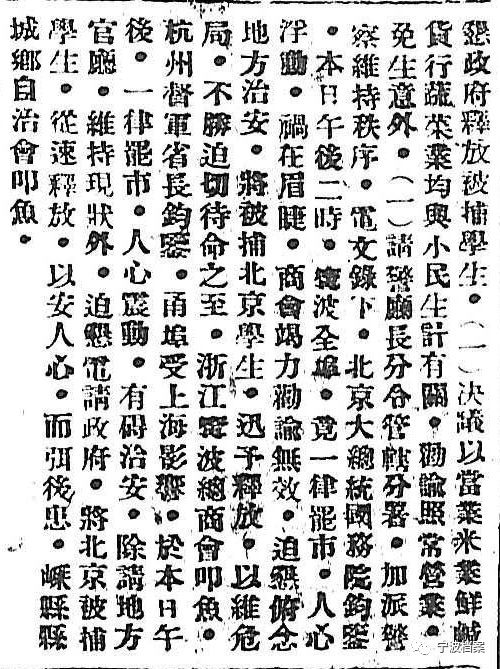 懇政府釋放被捕學生•(一)決議以當業米業鮮鹹
貨行蔬菜業均與小民生計有關•勸諭照常營業•
免生意外•(一)請警廳長分令管轄分署•加派警
察維持秩序•電文錄下•北京大總統國務院鈞鑒
•本日午後二時•寗波全埠•竟一律罷市•人心
浮動•禍在眉睫•商會竭力勸諭無效•迫懇俯念
地方治安•將被捕北京學生•迅予釋放•以維危
局•不勝迫切待命之至•浙江寗波總商會叩魚•
杭州督軍省長鈞鑒•甬埠受上海影響•於本日午
後•一律罷市•人心震動•有碍治安•除請地方
官廳•維持現狀外•迫懇電請政府•將北京被捕
學生•從速釋放•以安人心•而弭後患•嵊縣縣
城鄉自治會叩魚•
宁波档案